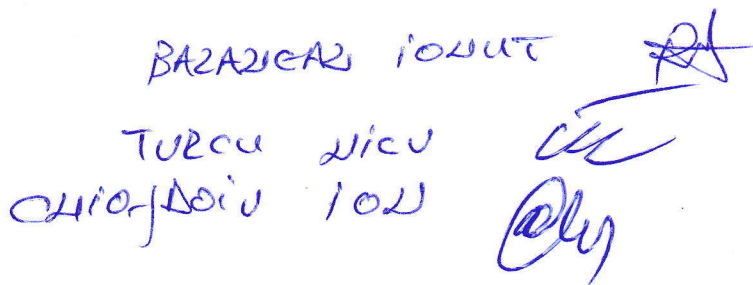 BAZARCAN IONUT
TURCU NICU
CHIOJDOIU ION